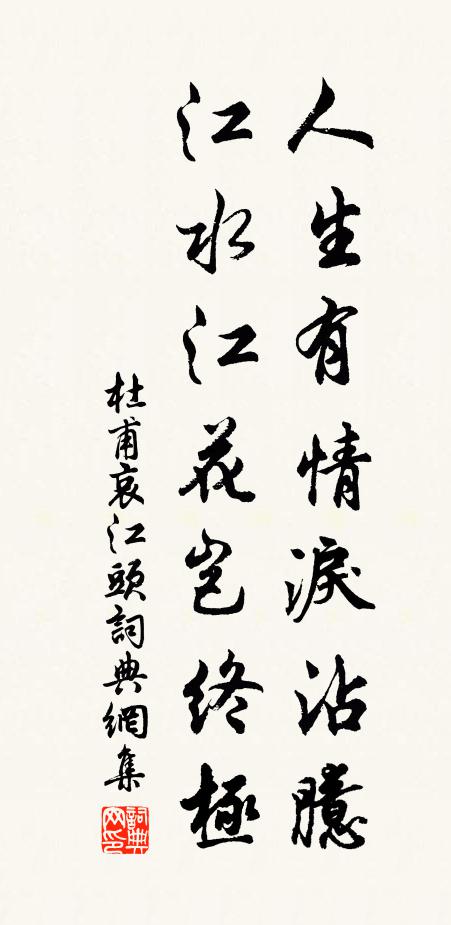 人生有情淚沾臆
江水江花豈終極
杜甫哀江頭詞典網集
詞典
网印